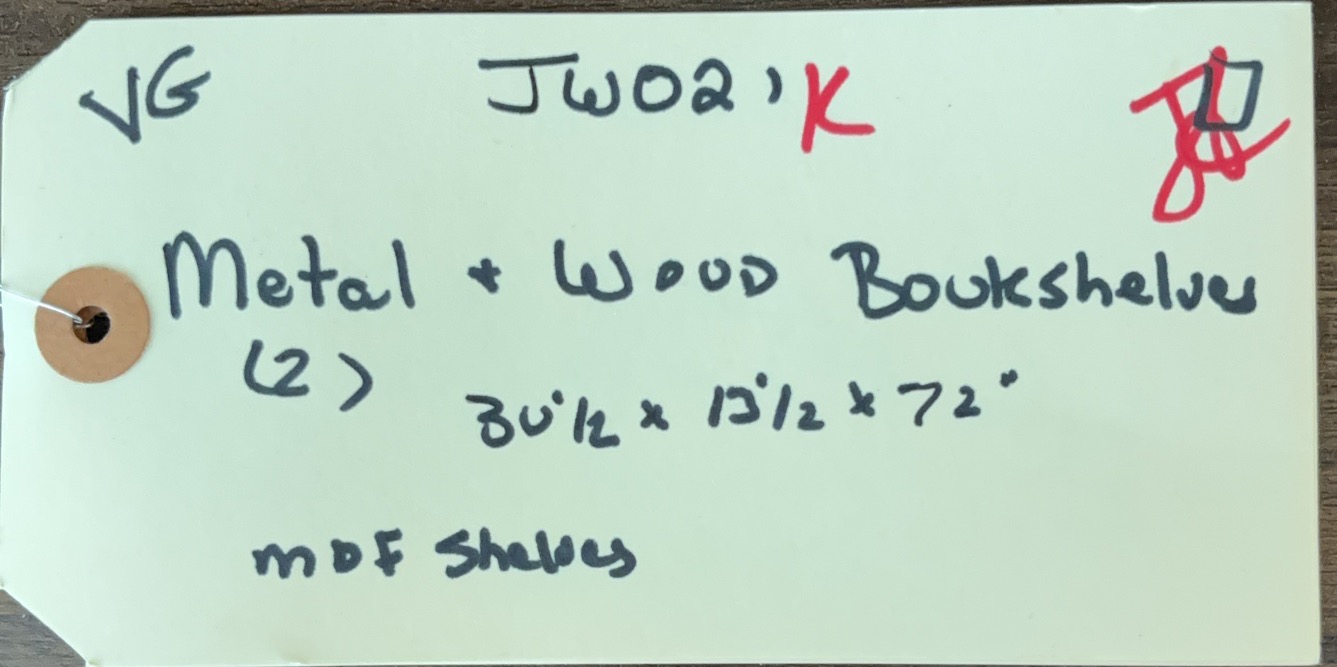 VG JW02, K
Metal + Wood Bookshelves
(2) 30 1/2 x 13 1/2 x 72"
MDF Shelves